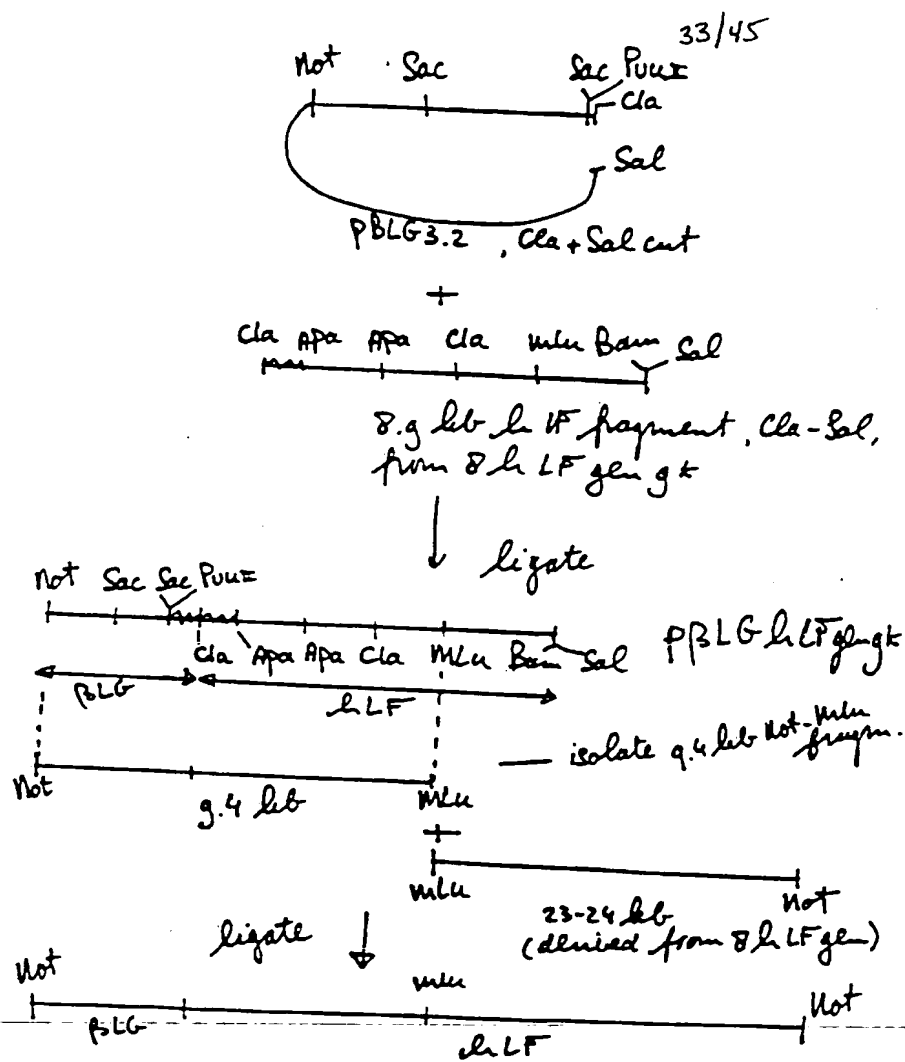 33/45
Not Sac Sac PvuII
Cla
Sal
pBLG3.2, Cla + Sal cut
+
Cla Apa Apa Cla Mlu Bam Sal
8.9 kb hLF fragment, Cla-Sal,
from 8hLF gen gk
ligate
Not Sac Sac PvuII
Cla Apa Apa Cla MLu Bam Sal
pβLG hLF gen gk
βLG hLF
isolate 9.4 kb Not-Mlu
fragm.
Not 9.4 kb MLu
+
MLu Not
23-24 kb
(derived from 8hLF gen)
ligate
Not Mlu Not
βLG hLF